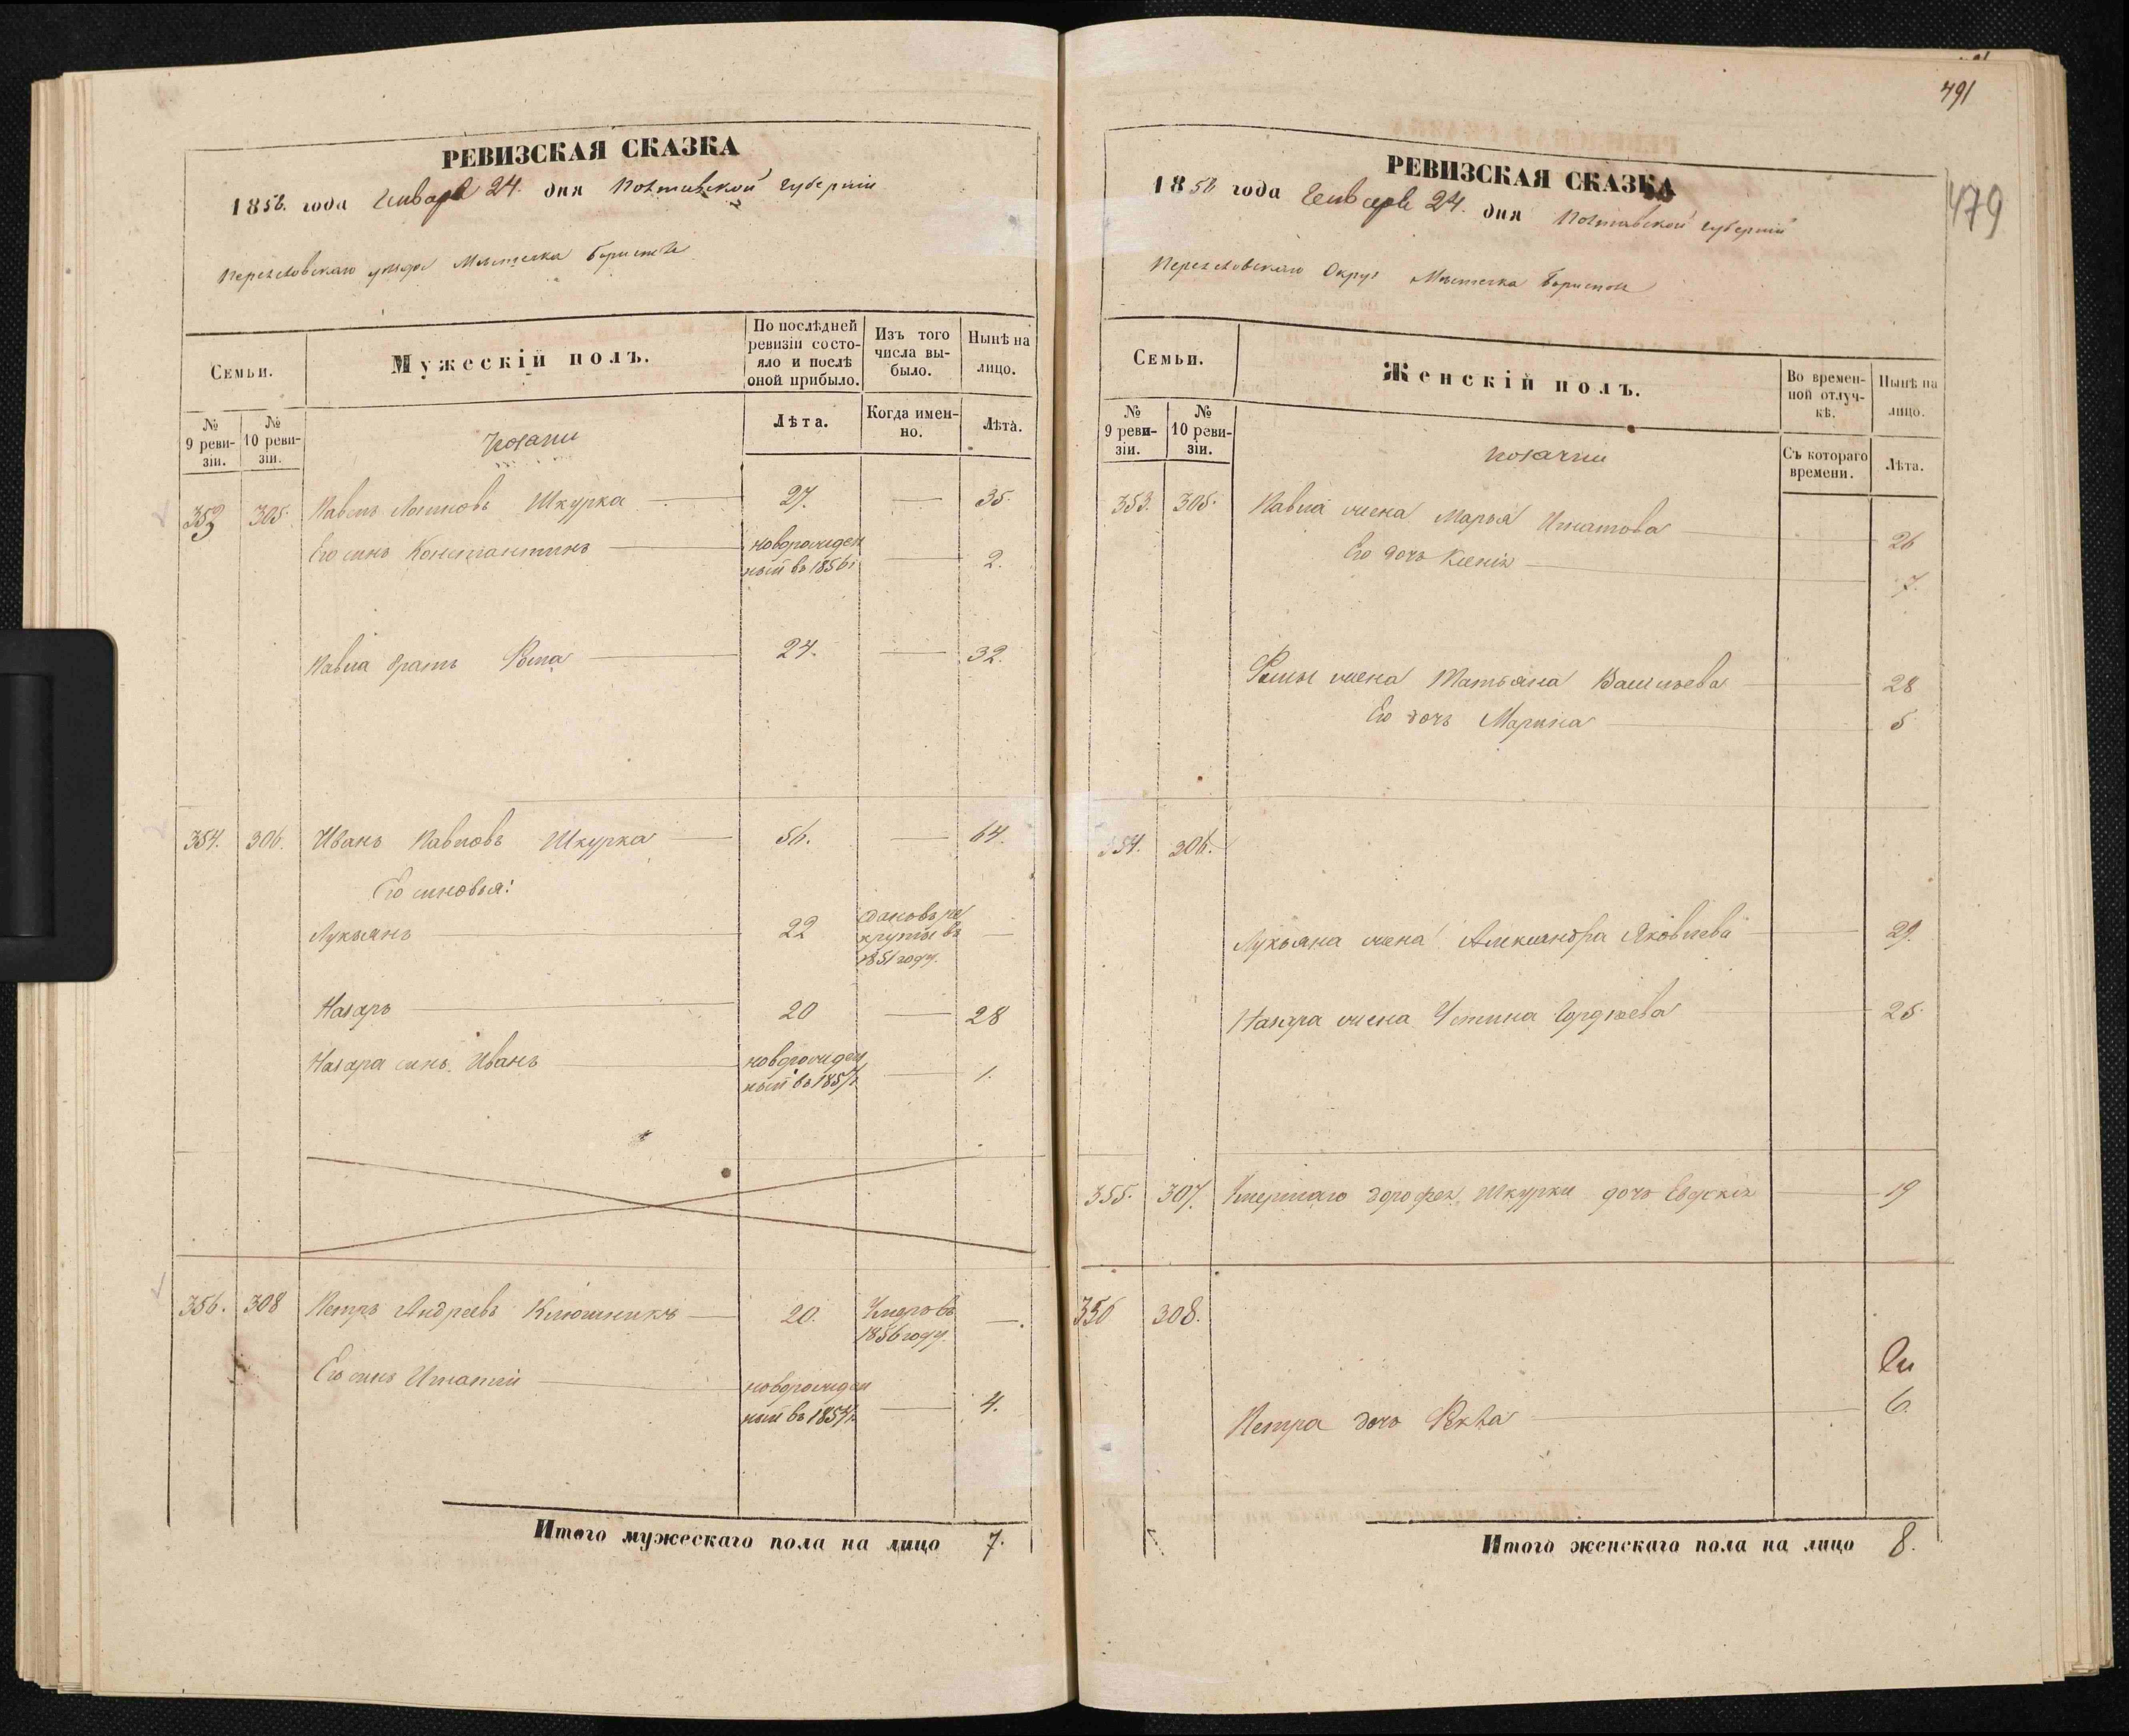 РЕВИЗСКАЯ СКАЗКА
1858 года Генваря 24. дня Полтавской губерніи
Переяловскаго уезда Мѣстечка Бориспол
Семьи.
Мужескій полъ.
По послѣдней ревизіи состояло и послѣ оной прибыло.
Изъ того числа выбыло.
Нынѣ на лицо.
№ 9 ревизіи.
№ 10 ревизіи.
Козаки
Лѣта.
Когда именно.
Лѣта.
353 305. Павелъ Логиновъ Шкурка 27. — 35.
Его сынъ Константинъ новорожденный въ 1856 г — 2.
Павла братъ 24. — 32.
354. 306. Иванъ Павловъ Шкурка 56. — 64.
Его сыновья:
Лукьянъ 22 въ рекруты въ 1851 году. —
Назаръ 20 — 28
Назара сынъ Иванъ новорожденный въ 1857 г — 1.
356. 308 Петръ Андреевъ Ключникъ 20. Умеръ въ 1856 году. —.
Его сынъ Игнатій новорожденный въ 1854 г. — 4.
Итого мужескаго пола на лицо 7.
491
479
РЕВИЗСКАЯ СКАЗКА
1858 года Генваря 24. дня Полтавской губерніи
Переяловскаго Округа Мѣстечка Бориспол
Семьи.
Женскій полъ.
Во временной отлучкѣ.
Нынѣ на лицо.
№ 9 ревизіи.
№ 10 ревизіи.
Козачки
Съ котораго времени.
Лѣта.
353. 305. Павла жена Марья Игнатова — 26
Его дочь Ксенія — 7.
жена Татьяна Васильева — 28
Его дочь Марина — 5
354. 306.
Лукьяна жена Александра Яковлева — 29.
Назара жена Устина Гордѣева — 25.
355. 307. Умершаго Дорофея Шкурки дочь Евдокія — 19
356 308.
Петра дочь Фекла — 6.
Итого женскаго пола на лицо 8.